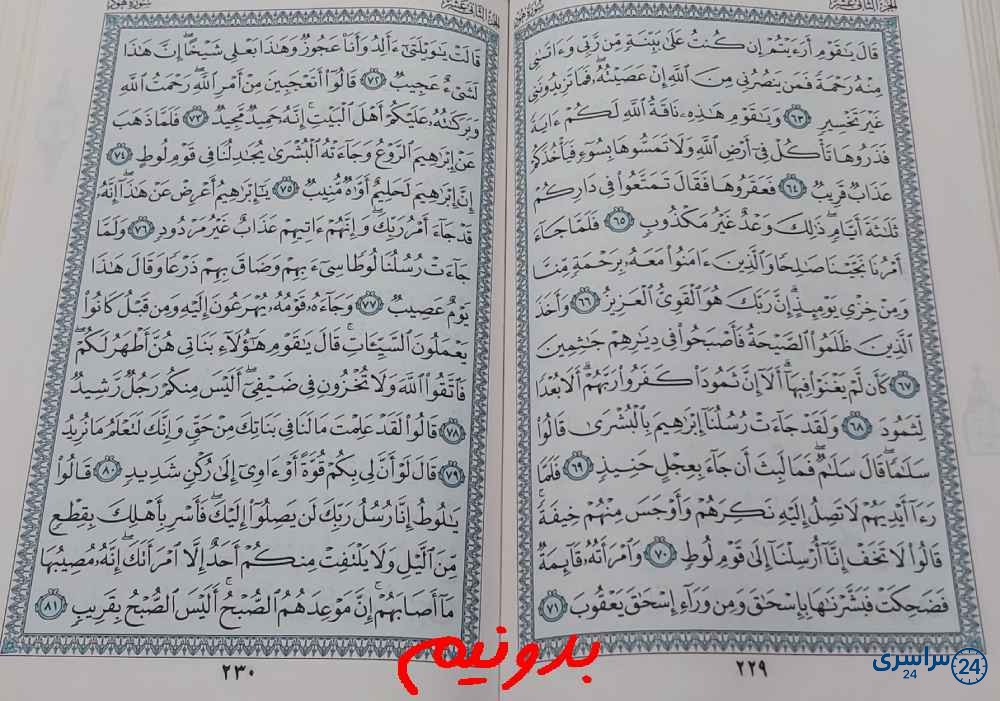 الجزء الثاني عشر
سورة هود
قَالَ يَٰقَوْمِ أَرَءَيْتُمْ إِن كُنتُ عَلَىٰ بَيِّنَةٍ مِّن رَّبِّى وَءَاتَىٰنِى
مِنْهُ رَحْمَةً فَمَن يَنصُرُنِى مِنَ ٱللَّهِ إِنْ عَصَيْتُهُۥ فَمَا تَزِيدُونَنِى
غَيْرَ تَخْسِيرٍ ٦٣ وَيَٰقَوْمِ هَٰذِهِۦ نَاقَةُ ٱللَّهِ لَكُمْ ءَايَةً
فَذَرُوهَا تَأْكُلْ فِىٓ أَرْضِ ٱللَّهِ وَلَا تَمَسُّوهَا بِسُوٓءٍ فَيَأْخُذَكُمْ
عَذَابٌ قَرِيبٌ ٦٤ فَعَقَرُوهَا فَقَالَ تَمَتَّعُوا۟ فِى دَارِكُمْ
ثَلَٰثَةَ أَيَّامٍ ذَٰلِكَ وَعْدٌ غَيْرُ مَكْذُوبٍ ٦٥ فَلَمَّا جَآءَ
أَمْرُنَا نَجَّيْنَا صَٰلِحًا وَٱلَّذِينَ ءَامَنُوا۟ مَعَهُۥ بِرَحْمَةٍ مِّنَّا
وَمِنْ خِزْىِ يَوْمِئِذٍ إِنَّ رَبَّكَ هُوَ ٱلْقَوِىُّ ٱلْعَزِيزُ ٦٦ وَأَخَذَ
ٱلَّذِينَ ظَلَمُوا۟ ٱلصَّيْحَةُ فَأَصْبَحُوا۟ فِى دِيَٰرِهِمْ جَٰثِمِينَ
٦٧ كَأَن لَّمْ يَغْنَوْا۟ فِيهَآ أَلَآ إِنَّ ثَمُودَا۟ كَفَرُوا۟ رَبَّهُمْ أَلَا بُعْدًا
لِّثَمُودَ ٦٨ وَلَقَدْ جَآءَتْ رُسُلُنَآ إِبْرَٰهِيمَ بِٱلْبُشْرَىٰ قَالُوا۟
سَلَٰمًا قَالَ سَلَٰمٌ فَمَا لَبِثَ أَن جَآءَ بِعِجْلٍ حَنِيذٍ ٦٩ فَلَمَّا
رَءَآ أَيْدِيَهُمْ لَا تَصِلُ إِلَيْهِ نَكِرَهُمْ وَأَوْجَسَ مِنْهُمْ خِيفَةً
قَالُوا۟ لَا تَخَفْ إِنَّآ أُرْسِلْنَآ إِلَىٰ قَوْمِ لُوطٍ ٧٠ وَٱمْرَأَتُهُۥ قَآئِمَةٌ
فَضَحِكَتْ فَبَشَّرْنَٰهَا بِإِسْحَٰقَ وَمِن وَرَآءِ إِسْحَٰقَ يَعْقُوبَ ٧١
٢٢٩
الجزء الثاني عشر
سورة هود
قَالَتْ يَٰوَيْلَتَىٰٓ ءَأَلِدُ وَأَنَا۠ عَجُوزٌ وَهَٰذَا بَعْلِى شَيْخًا إِنَّ هَٰذَا
لَشَىْءٌ عَجِيبٌ ٧٢ قَالُوٓا۟ أَتَعْجَبِينَ مِنْ أَمْرِ ٱللَّهِ رَحْمَتُ ٱللَّهِ
وَبَرَكَٰتُهُۥ عَلَيْكُمْ أَهْلَ ٱلْبَيْتِ إِنَّهُۥ حَمِيدٌ مَّجِيدٌ ٧٣ فَلَمَّا ذَهَبَ
عَنْ إِبْرَٰهِيمَ ٱلرَّوْعُ وَجَآءَتْهُ ٱلْبُشْرَىٰ يُجَٰدِلُنَا فِى قَوْمِ لُوطٍ ٧٤
إِنَّ إِبْرَٰهِيمَ لَحَلِيمٌ أَوَّٰهٌ مُّنِيبٌ ٧٥ يَٰٓإِبْرَٰهِيمُ أَعْرِضْ عَنْ هَٰذَآ إِنَّهُۥ
قَدْ جَآءَ أَمْرُ رَبِّكَ وَإِنَّهُمْ ءَاتِيهِمْ عَذَابٌ غَيْرُ مَرْدُودٍ ٧٦ وَلَمَّا
جَآءَتْ رُسُلُنَا لُوطًا سِىٓءَ بِهِمْ وَضَاقَ بِهِمْ ذَرْعًا وَقَالَ هَٰذَا
يَوْمٌ عَصِيبٌ ٧٧ وَجَآءَهُۥ قَوْمُهُۥ يُهْرَعُونَ إِلَيْهِ وَمِن قَبْلُ كَانُوا۟
يَعْمَلُونَ ٱلسَّيِّـَٔاتِ قَالَ يَٰقَوْمِ هَٰٓؤُلَآءِ بَنَاتِى هُنَّ أَطْهَرُ لَكُمْ
فَٱتَّقُوا۟ ٱللَّهَ وَلَا تُخْزُونِ فِى ضَيْفِىٓ أَلَيْسَ مِنكُمْ رَجُلٌ رَّشِيدٌ
٧٨ قَالُوا۟ لَقَدْ عَلِمْتَ مَا لَنَا فِى بَنَاتِكَ مِنْ حَقٍّ وَإِنَّكَ لَتَعْلَمُ مَا نُرِيدُ
٧٩ قَالَ لَوْ أَنَّ لِى بِكُمْ قُوَّةً أَوْ ءَاوِىٓ إِلَىٰ رُكْنٍ شَدِيدٍ ٨٠ قَالُوا۟
يَٰلُوطُ إِنَّا رُسُلُ رَبِّكَ لَن يَصِلُوٓا۟ إِلَيْكَ فَأَسْرِ بِأَهْلِكَ بِقِطْعٍ
مِّنَ ٱلَّيْلِ وَلَا يَلْتَفِتْ مِنكُمْ أَحَدٌ إِلَّا ٱمْرَأَتَكَ إِنَّهُۥ مُصِيبُهَا
مَآ أَصَابَهُمْ إِنَّ مَوْعِدَهُمُ ٱلصُّبْحُ أَلَيْسَ ٱلصُّبْحُ بِقَرِيبٍ ٨١
٢٣٠
بدونیم
سراسری 24
24